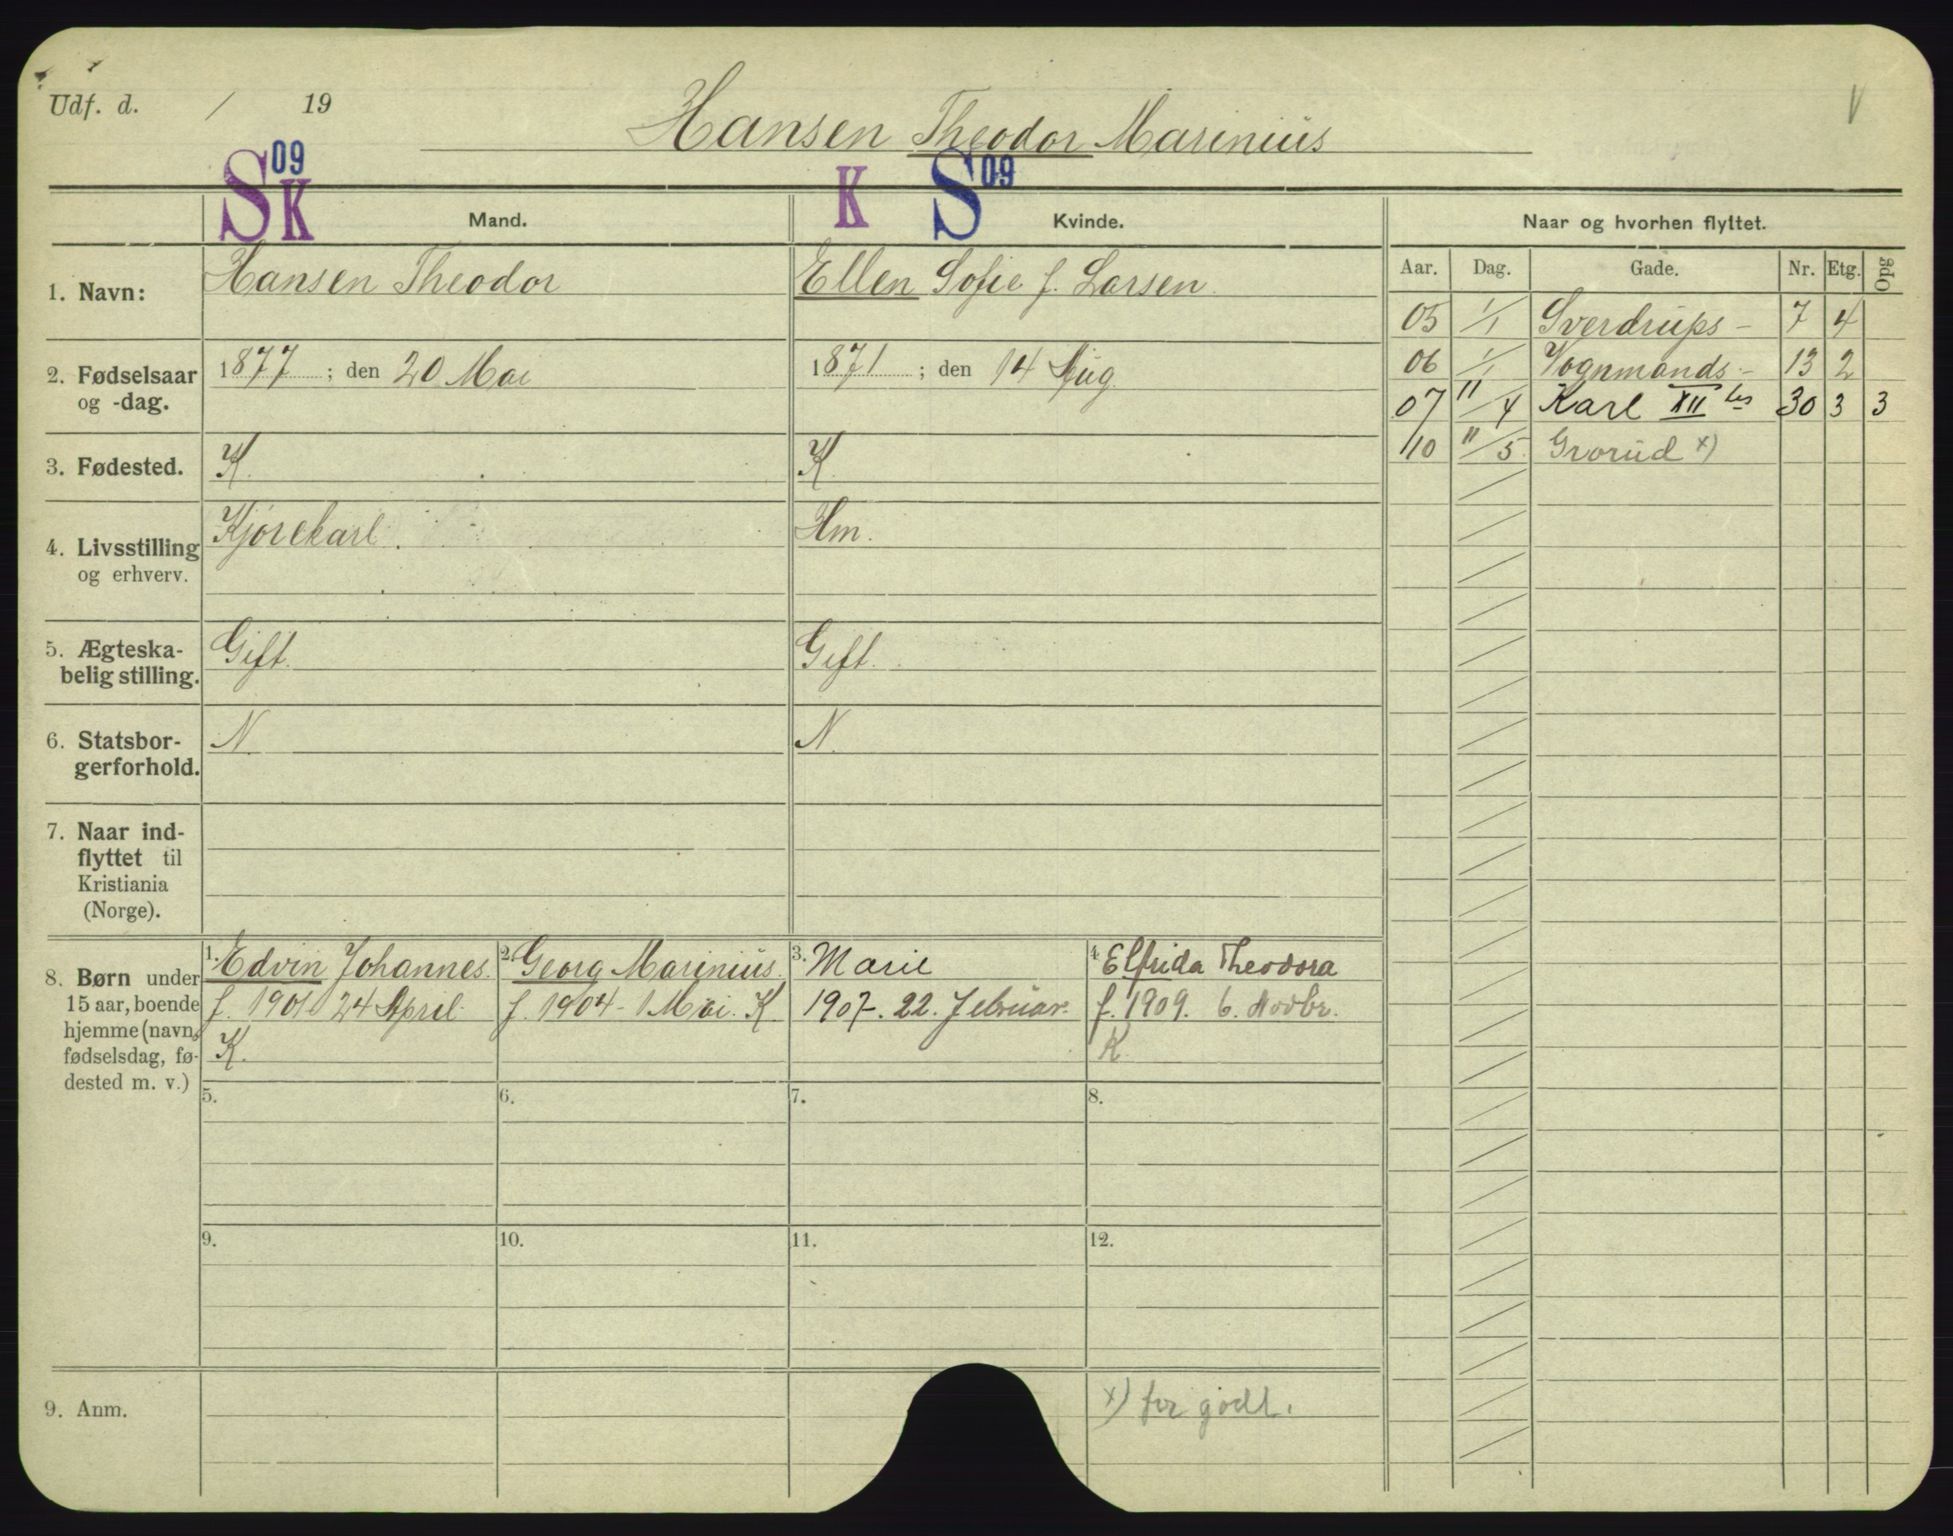 Udf. d. / 19
Hansen Theodor Marinius
V
S 09 K
K S 09
Mand.
Kvinde.
Naar og hvorhen flyttet.
Aar. Dag. Gade. Nr. Etg. Opg
1. Navn: Hansen Theodor
Ellen Sofie f. Larsen
2. Fødselsaar og -dag. 1877 ; den 20 Mai
1871 ; den 14 Aug.
3. Fødested. K.
K.
4. Livsstilling og erhverv. Kjørekarl.
Hm.
5. Ægteska-
belig stilling. Gift.
Gift.
6. Statsbor-
gerforhold. N.
N.
7. Naar ind-
flyttet til
Kristiania
(Norge).
05 1/1 Sverdrups- 7 4
06 1/1 Vognmands- 13 2
07 11/4 Karl XII tes 30 3 3
10 11/5 Grorud x)
8. Børn under
15 aar, boende
hjemme (navn,
fødselsdag, fø-
dested m. v.)
1. Edvin Johannes.
f. 1901 24 April.
K.
2. Georg Marinius.
f. 1904 - 1 Mai. K
3. Marie
1907-. 22. Februar.
4. Elfrida Theodora
f. 1909. 6. Novbr.
K
5. 6. 7. 8.
9. 10. 11. 12.
9. Anm.
x) for godt.